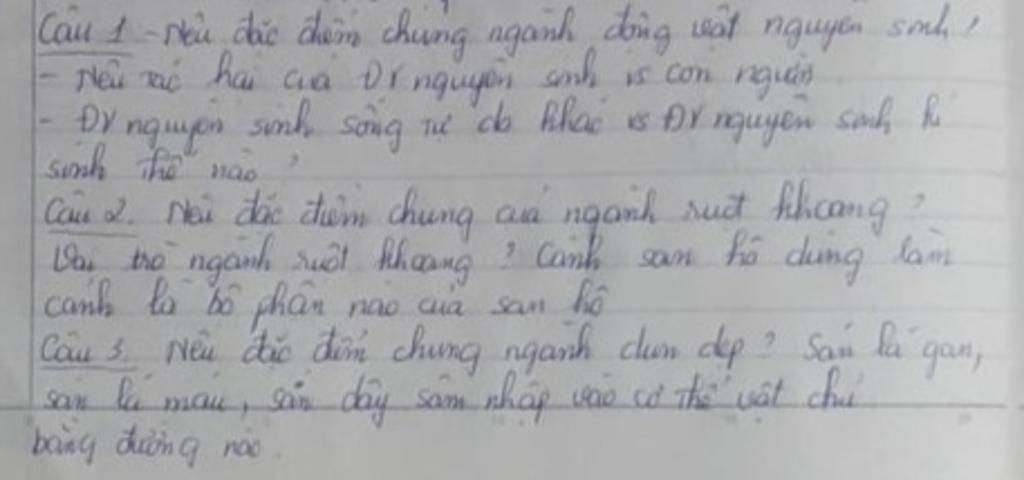 Câu 1 - Nêu đặc điểm chung ngành động vật nguyên sinh ?
- Nêu tác hại của ĐV nguyên sinh vs con người
- ĐV nguyên sinh sống tự do khác vs ĐV nguyên sinh kí
sinh thế nào ?
Câu 2. Nêu đặc điểm chung của ngành ruột khoang ?
Vai trò ngành ruột khoang ? Cành san hô dùng làm
cảnh là bộ phận nào của san hô
Câu 3. Nêu đặc điểm chung ngành giun dẹp ? Sán lá gan,
sán lá máu, sán dây xâm nhập vào cơ thể vật chủ
bằng đường nào.